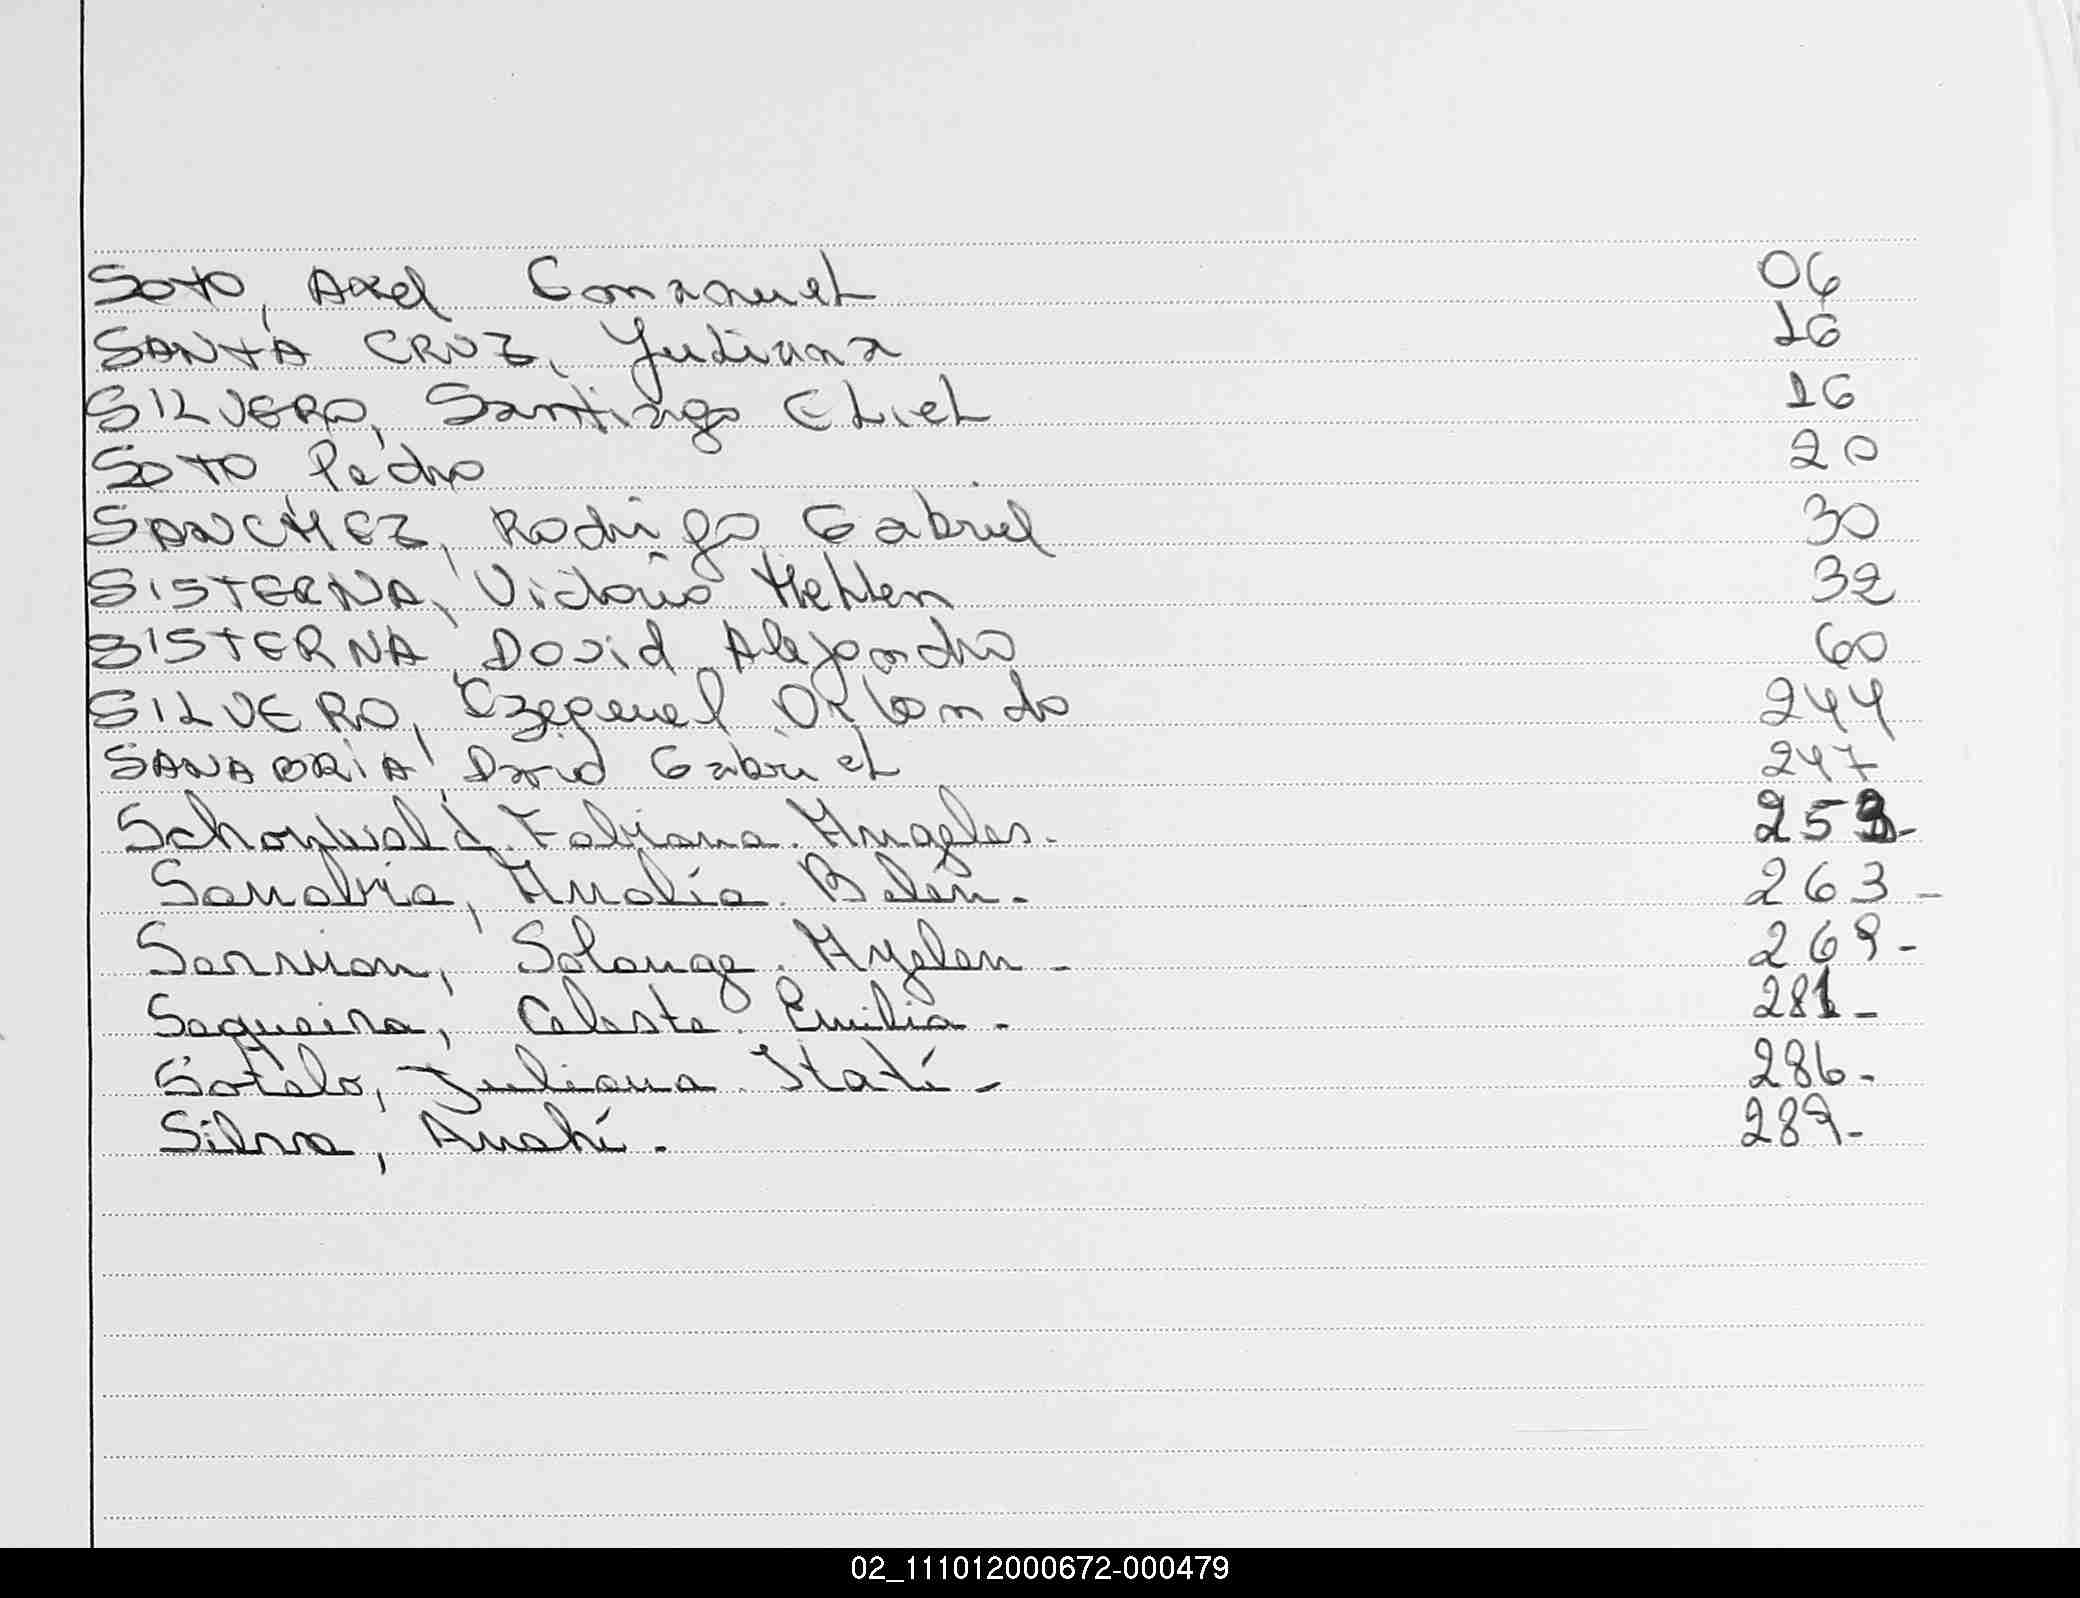 SOTO, Axel Emanuel 06
SANTA CRUZ, Juliana 16
SILVERO, Santiago Eliel 16
SOTO, Pedro 20
SANCHEZ, Rodrigo Gabriel 30
SISTERNA, Victoria Hellen 32
SISTERNA, David Alejandro 60
SILVERO, Ezequiel Orlando 244
SANABRIA, David Gabriel 247
Fabiana Angeles.
Sanabria, Analía Belén. 263-
Servian, Solange Ayelen - 269-
Sequeira, Celeste Emilia. 281-
Sotelo, Juliana Itatí - 286-
Silva, Anahí. 289-
02_111012000672-000479